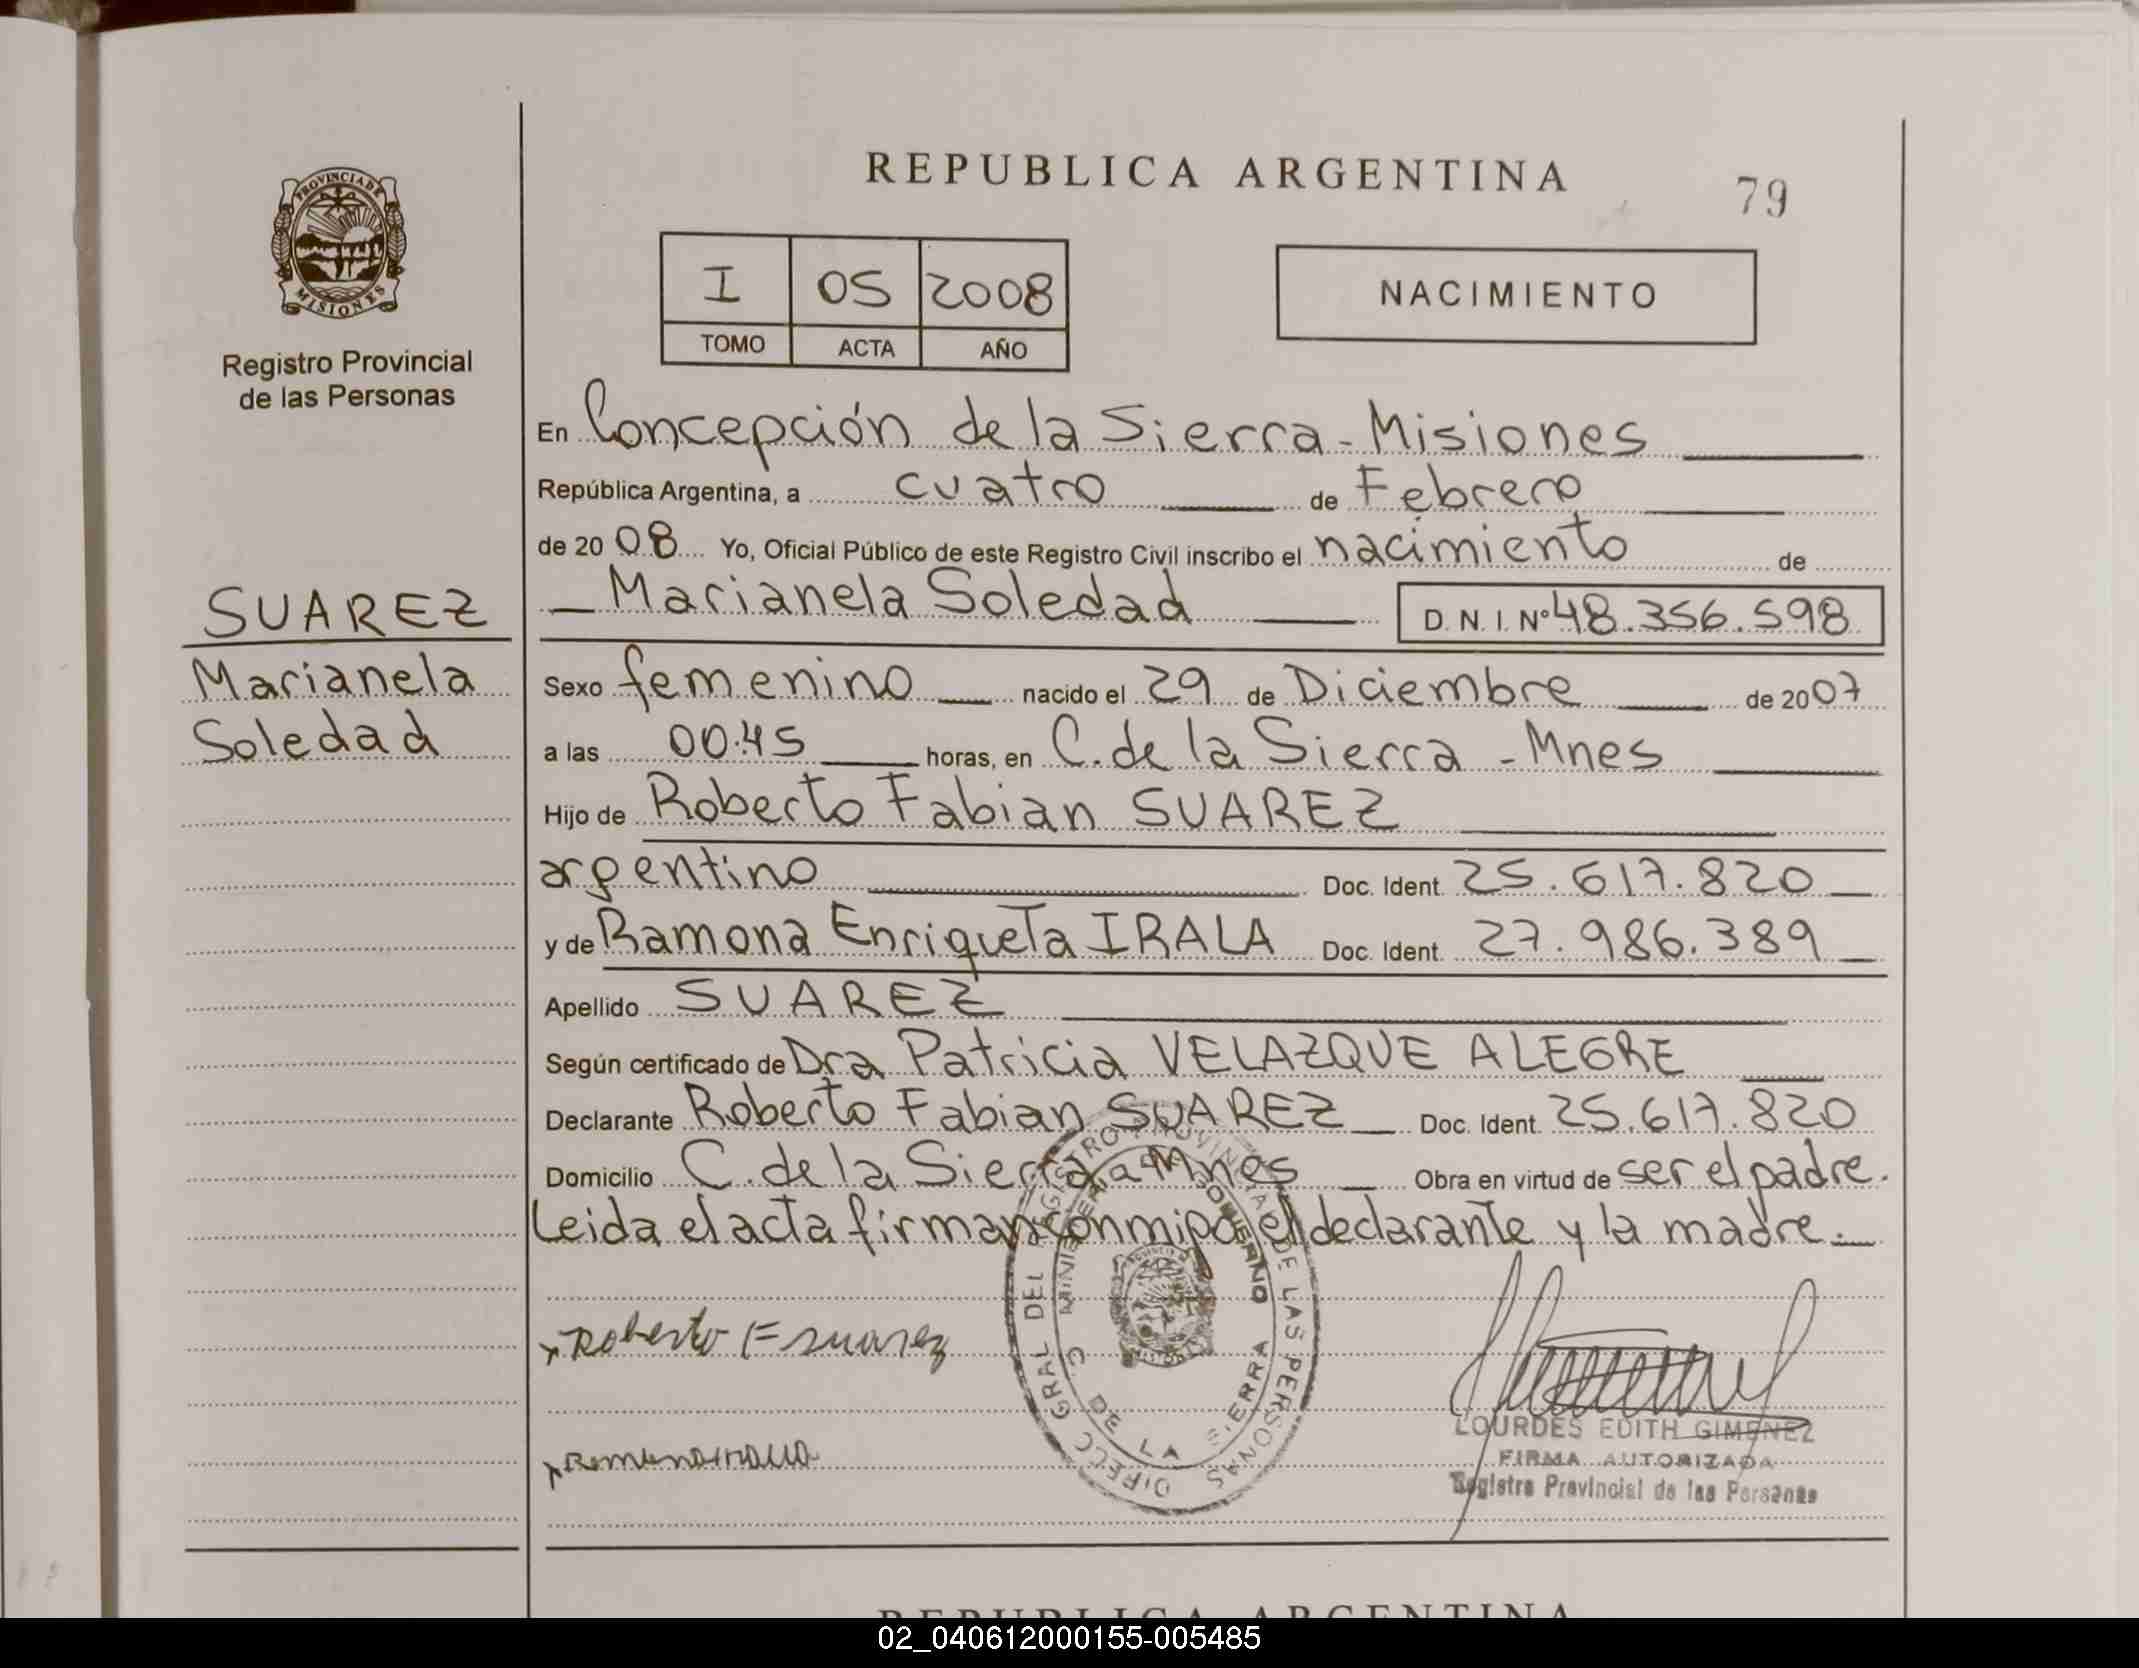 REPUBLICA ARGENTINA
79
PROVINCIA DE
MISIONES
Registro Provincial
de las Personas
I 05 2008
TOMO ACTA AÑO
NACIMIENTO
En Concepción de la Sierra - Misiones
República Argentina, a cuatro de Febrero
de 2008 Yo, Oficial Público de este Registro Civil inscribo el nacimiento de
Marianela Soledad D.N.I. Nº 48.356.598
SUAREZ
Marianela
Soledad
Sexo femenino nacido el 29 de Diciembre de 2007
a las 00:45 horas, en C. de la Sierra - Mnes
Hijo de Roberto Fabian SUAREZ
argentino Doc. Ident. 25.617.820
y de Ramona Enriqueta IRALA Doc. Ident. 27.986.389
Apellido SUAREZ
Según certificado de Dra Patricia VELAZQUE ALEGRE
Declarante Roberto Fabian SUAREZ Doc. Ident. 25.617.820
Domicilio C. de la Sierra Mnes Obra en virtud de ser el padre.
Leida el acta firman conmigo el declarante y la madre.
DIREC. GRAL DEL REGISTRO PROVINCIAL DE LAS PERSONAS
MINISTERIO DE GOBIERNO
C. DE LA SIERRA
Roberto F Suarez
Ramona Irala
LOURDES EDITH GIMENEZ
FIRMA AUTORIZADA
Registro Provincial de las Personas
REPUBLICA ARGENTINA
02_040612000155-005485